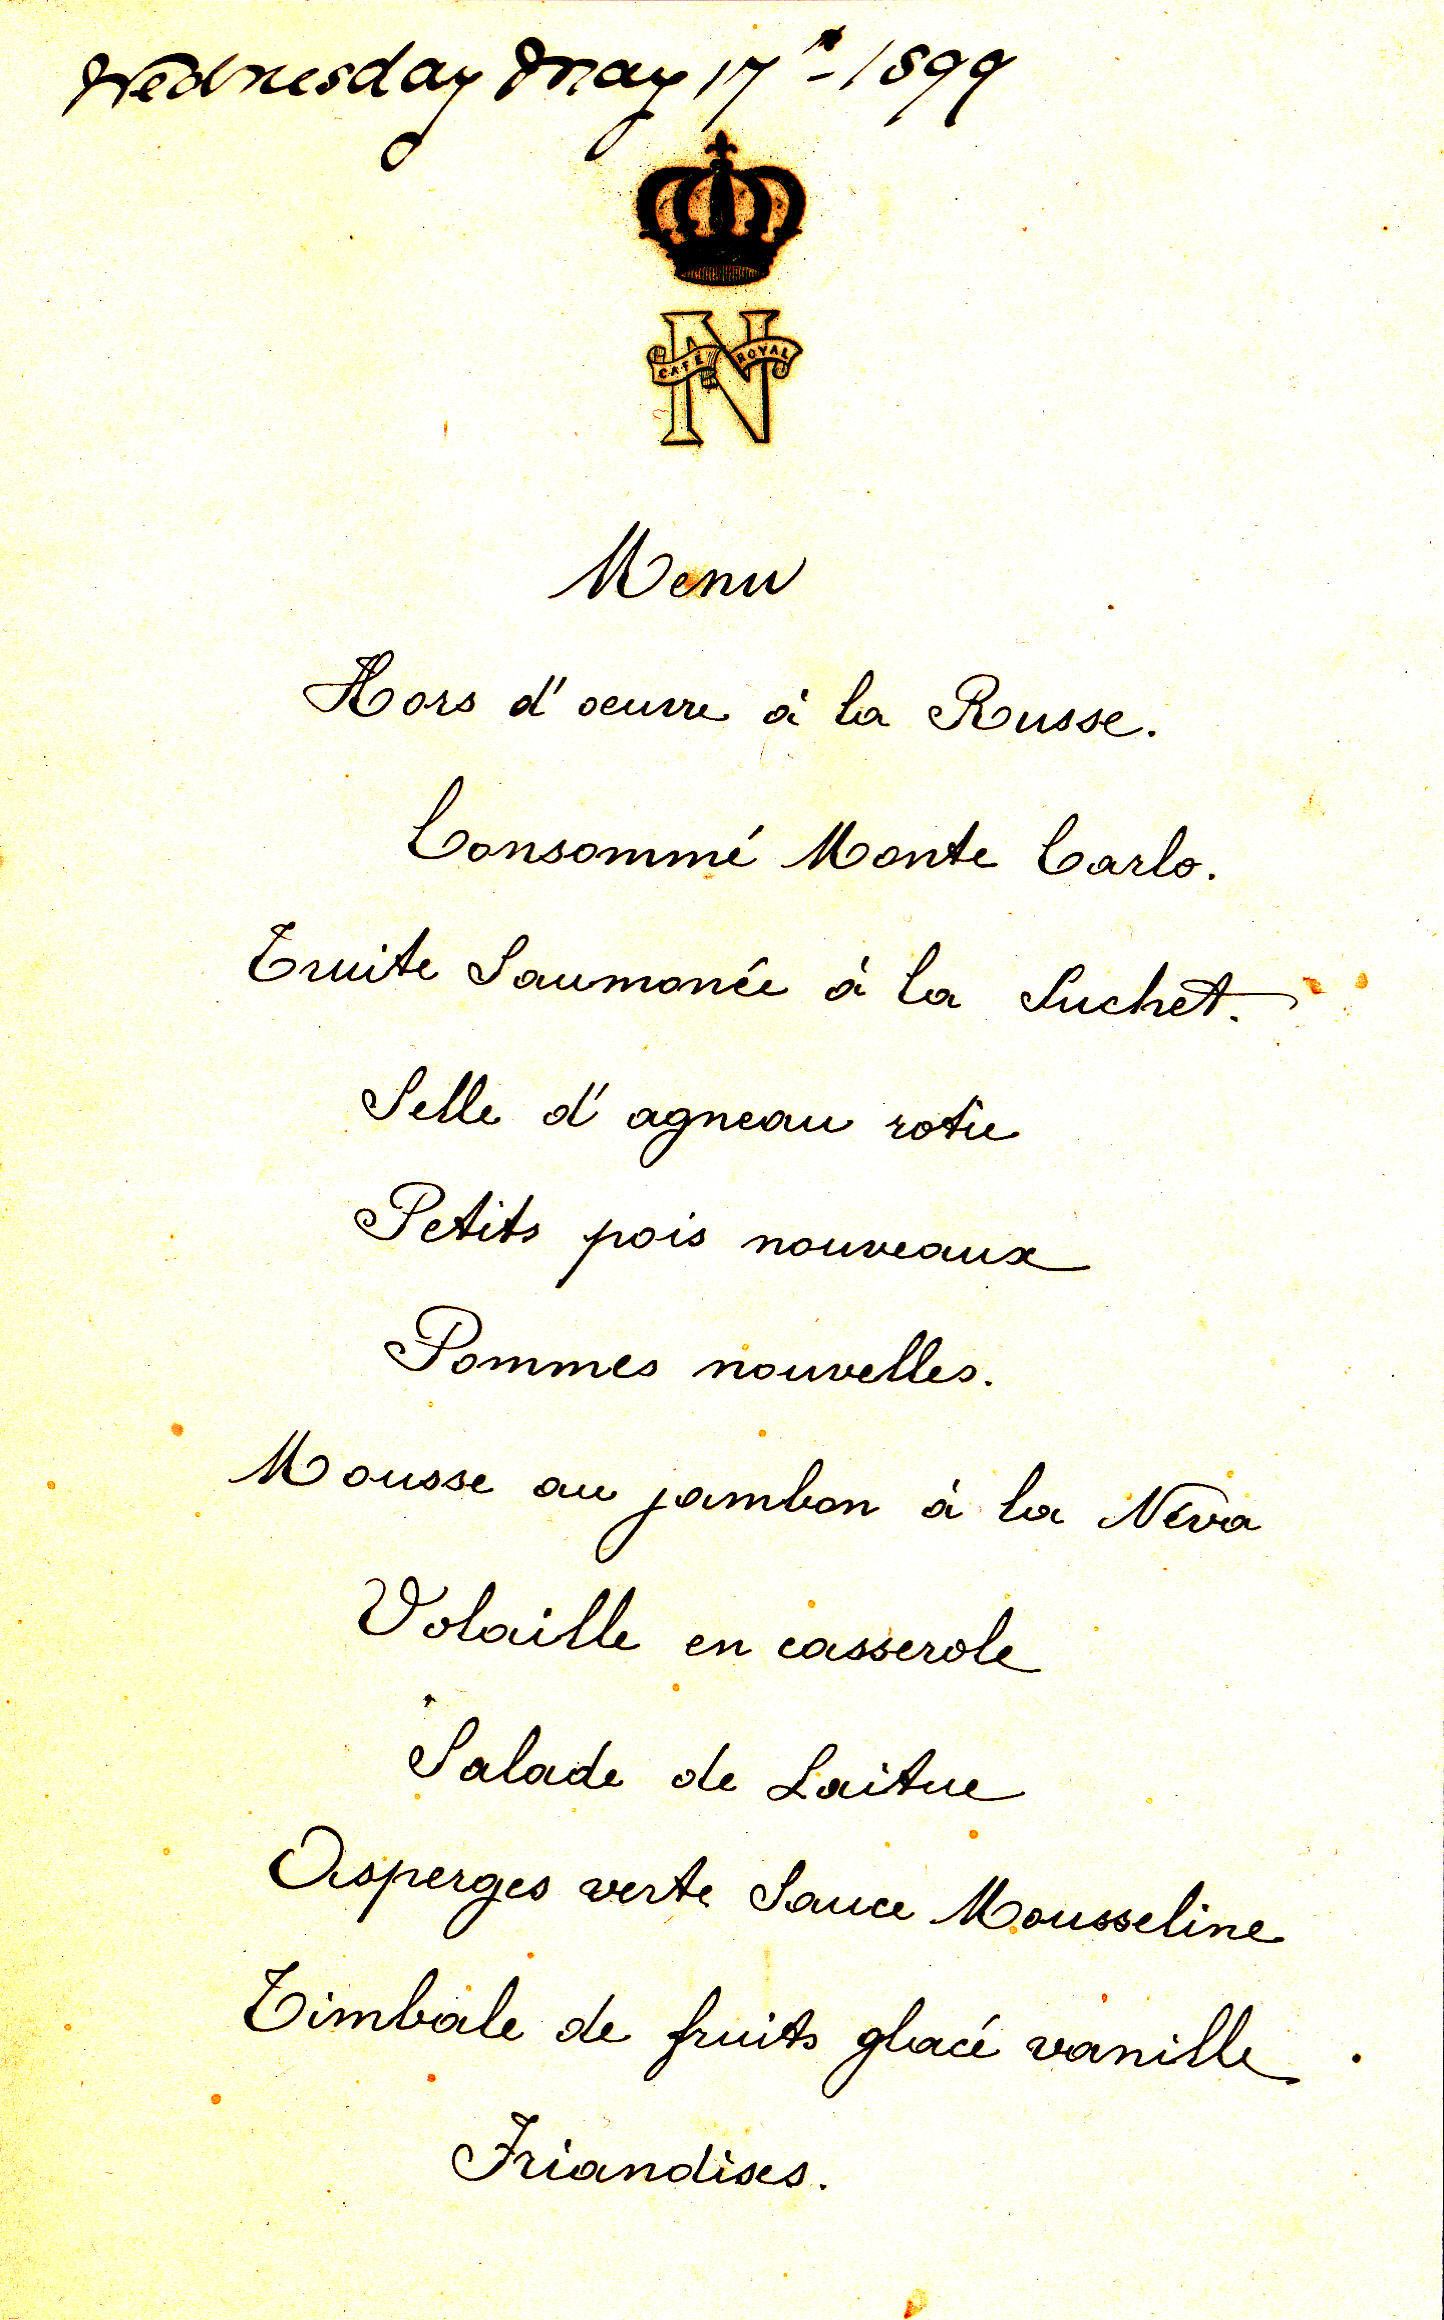 Wednesday May 17th - 1899
N
CAFÉ ROYAL
Menu
Hors d'oeuvre à la Russe.
Consommé Monte Carlo.
Truite Saumonée à la Suchet.
Selle d'agneau rotie
Petits pois nouveaux
Pommes nouvelles.
Mousse au jambon à la Néva
Volaille en casserole
Salade de Laitue
Asperges verte Sauce Mousseline
Timbale de fruits glacé vanille
Friandises.